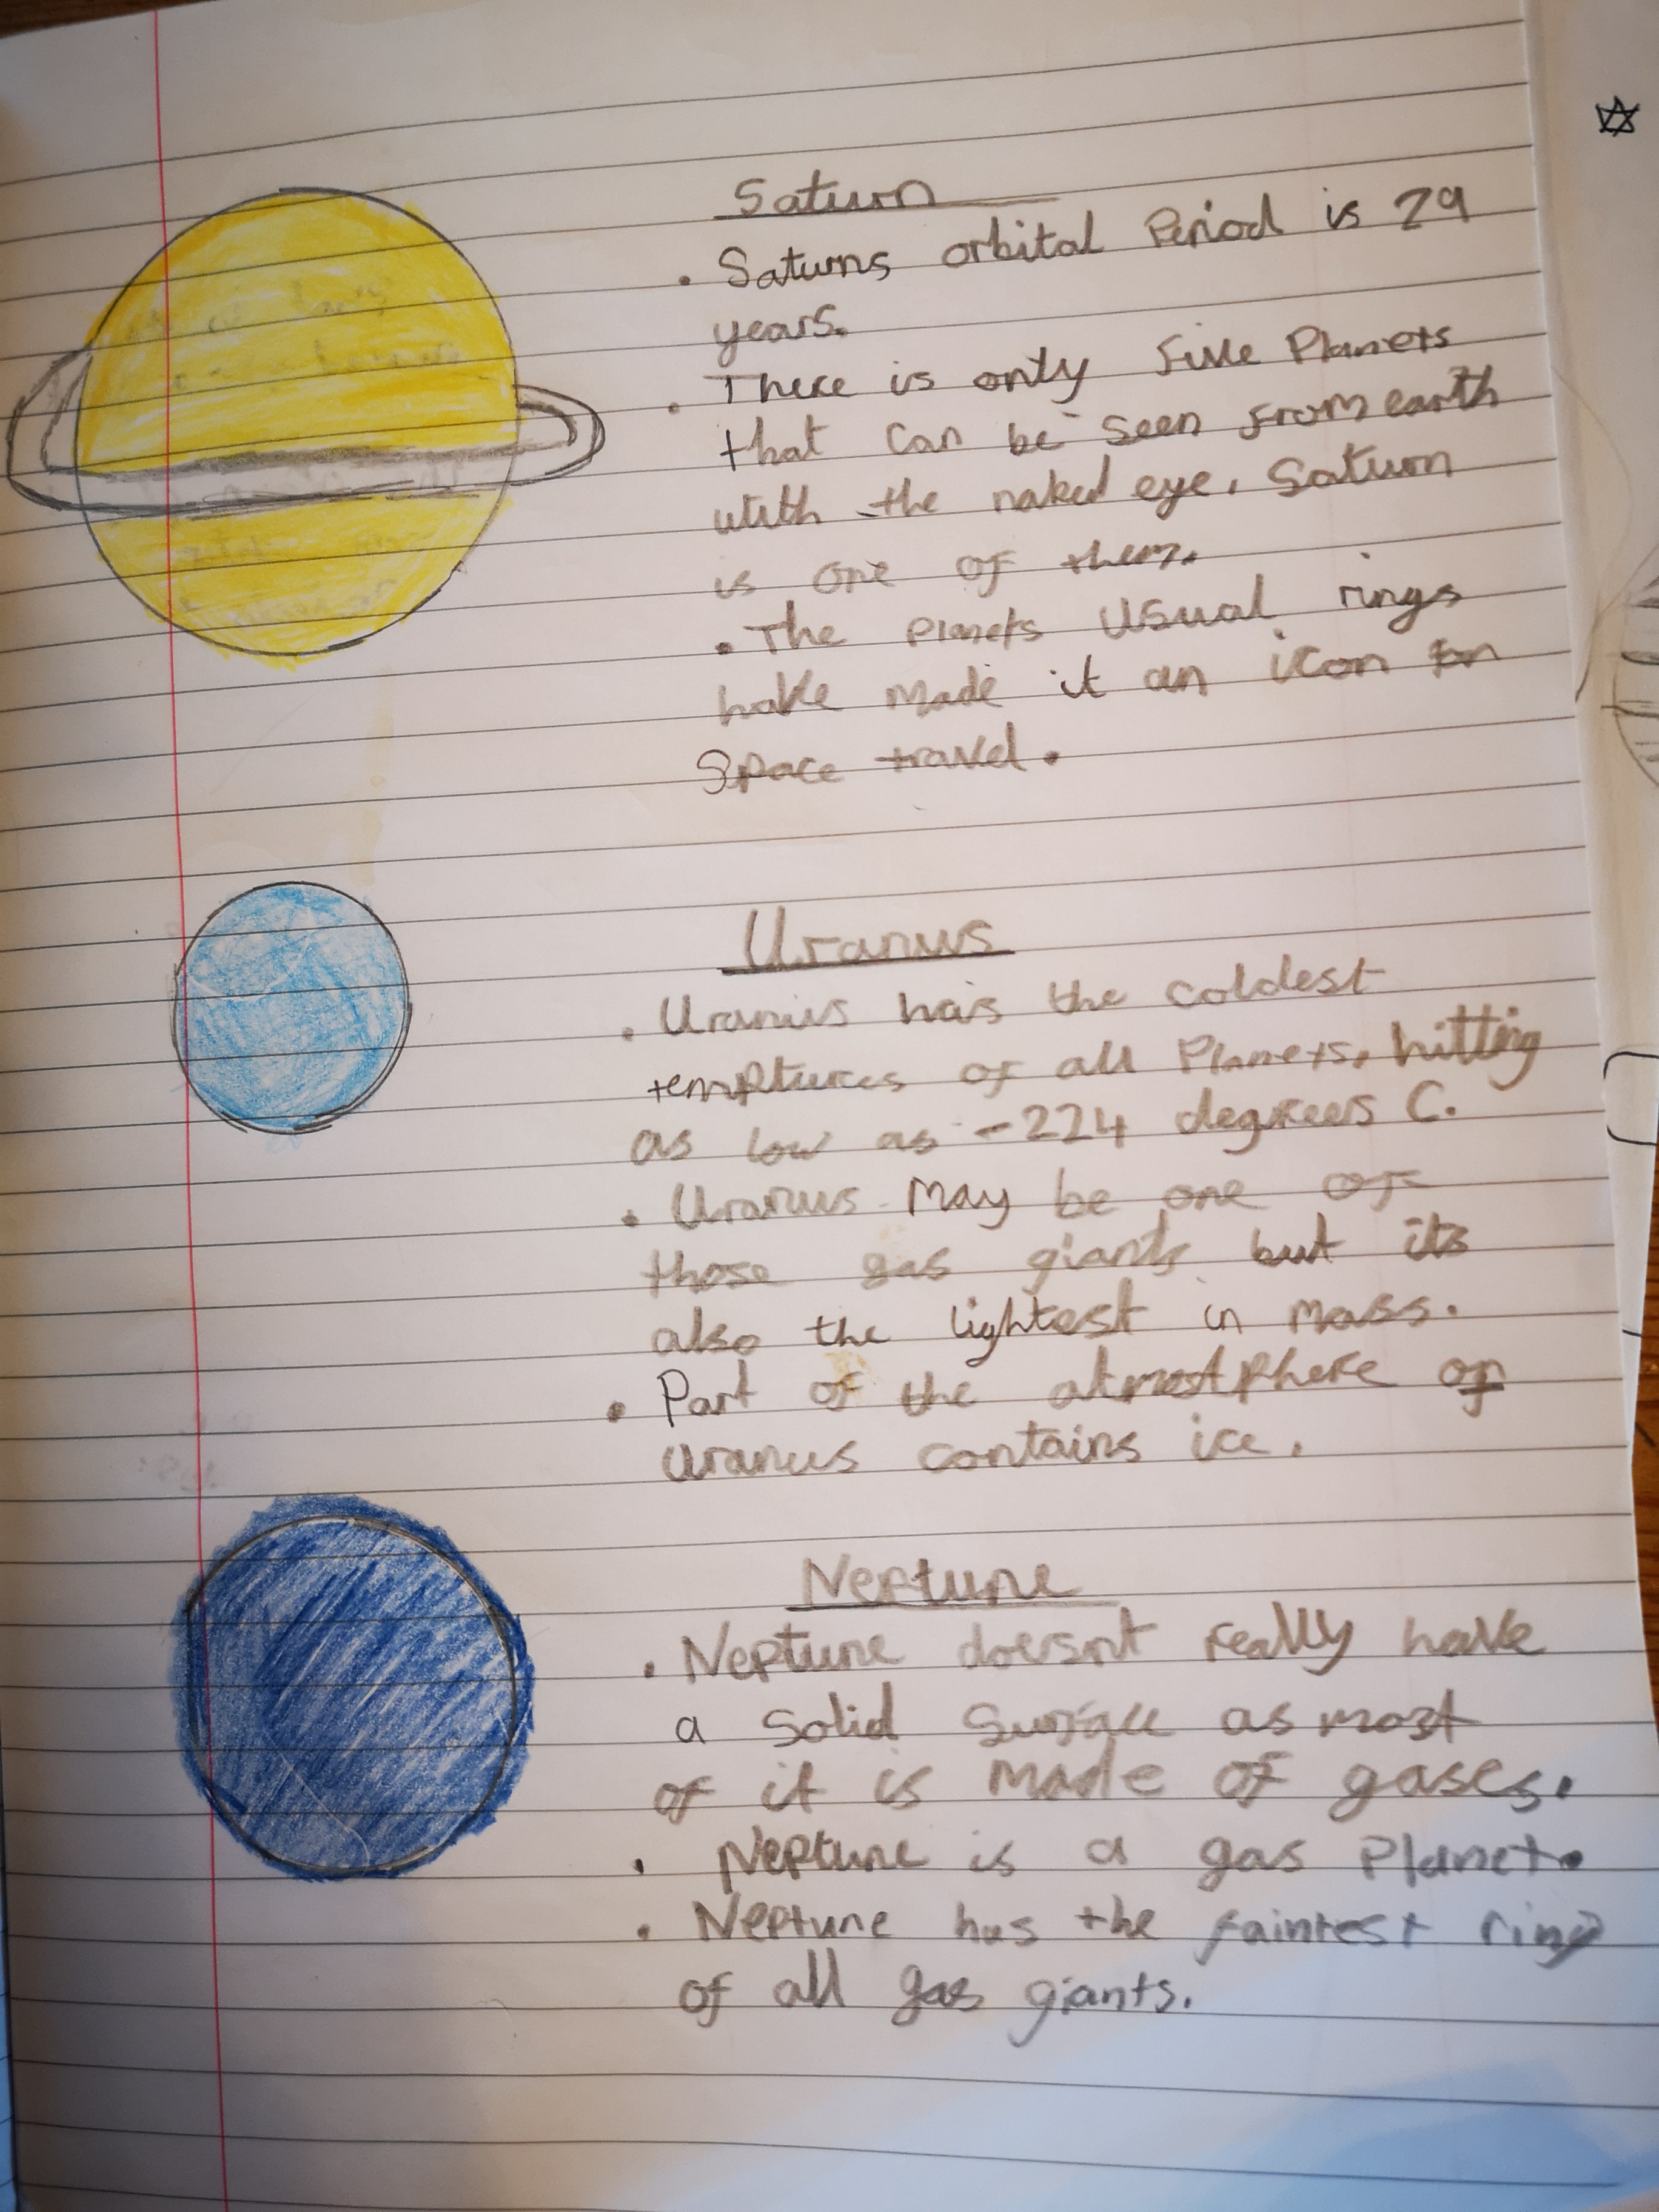 Saturn
• Saturns orbital Period is 29
years.
• There is only five Planets
that can be seen from earth
with the naked eye, Saturn
is one of them.
• The planets usual rings
have made it an icon for
Space travel.
Uranus
• Uranus has the coldest
temptures of all Planets, hitting
as low as -224 degrees C.
• Uranus may be one of
those gas giants but its
also the lightest in mass.
• Part of the atmostphere of
uranus contains ice.
Neptune
• Neptune doesnt really have
a solid surface as most
of it is made of gases.
• Neptune is a gas Planet.
• Neptune has the faintest ring
of all gas giants.